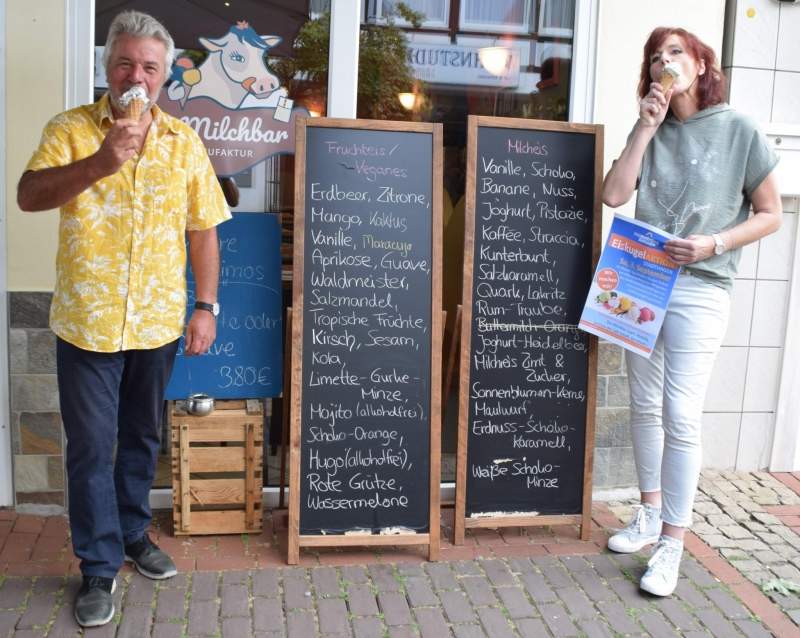 Milchbar
UFAKTUR
Fruchteis/
Veganes
Erdbeer, Zitrone,
Mango, Kaktus
Vanille, Maracuja
Aprikose, Guave,
Waldmeister,
Salzmandel,
Tropische Früchte,
Kirsch, Sesam,
Kola,
Limette-Gurke-
Minze,
Mojito (alkoholfrei),
Schoko-Orange,
Hugo (alkoholfrei),
Rote Grütze,
Wassermelone
Milcheis
Vanille, Schoko,
Banane, Nuss,
Joghurt, Pistazie,
Kaffee, Straccia,
Kunterbunt,
Salzkaramell,
Quark, Lakritz
Rum-Traube,
Buttermilch-Orange
Joghurt-Heidelbe
Milchreis Zimt &
Zucker,
Sonnenblumen-Kerne,
Maulwurf,
Erdnuss-Schoko-
karamell,
Weiße Schoko-
Minze
oder
3,80€
EiskugelAKTION
September